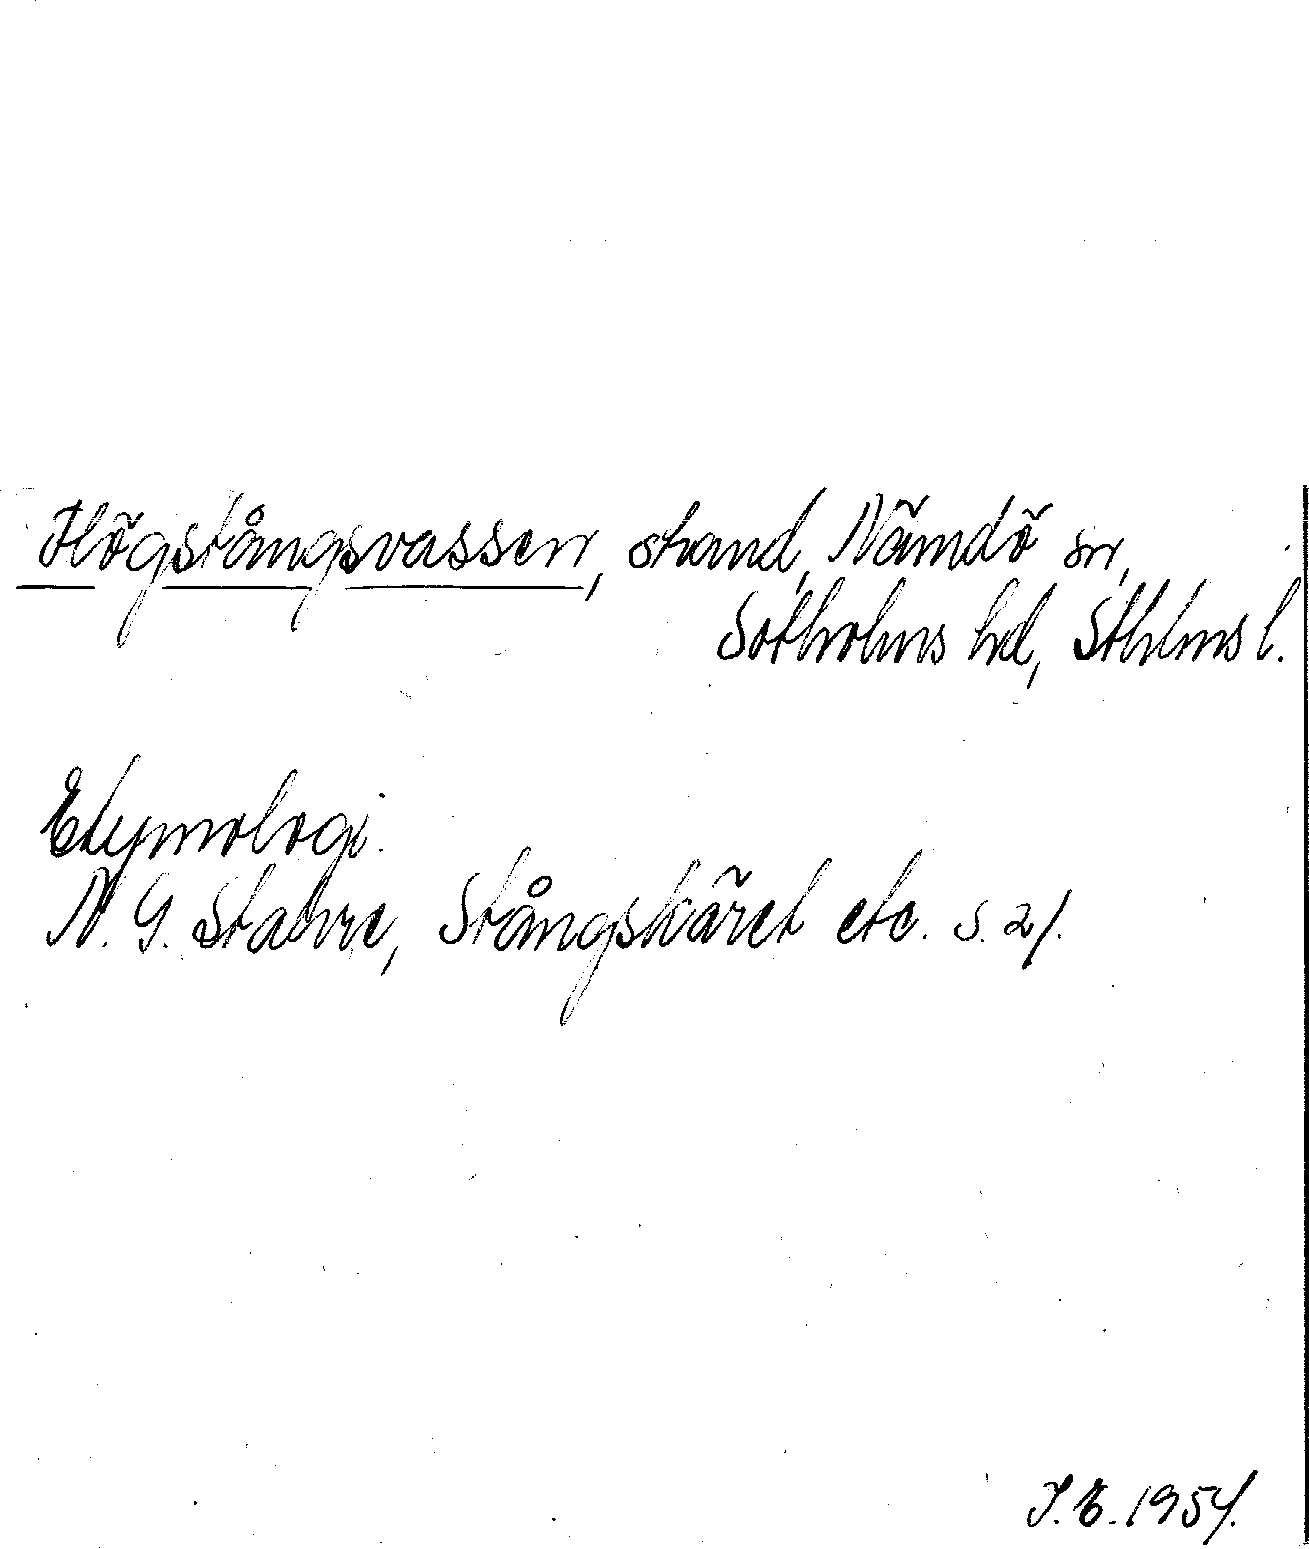 Högstångsvassen, strand, Nämdö sn,
Sotholms hd, Sthlms l.
Etymologi.
N. G. Stahre, Stångskäret etc. s. 21.
I. E. 1954.